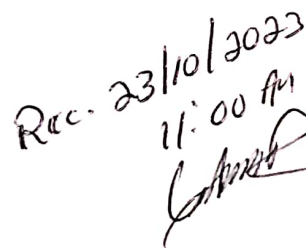 Rec. 23/10/2023
11:00 AM